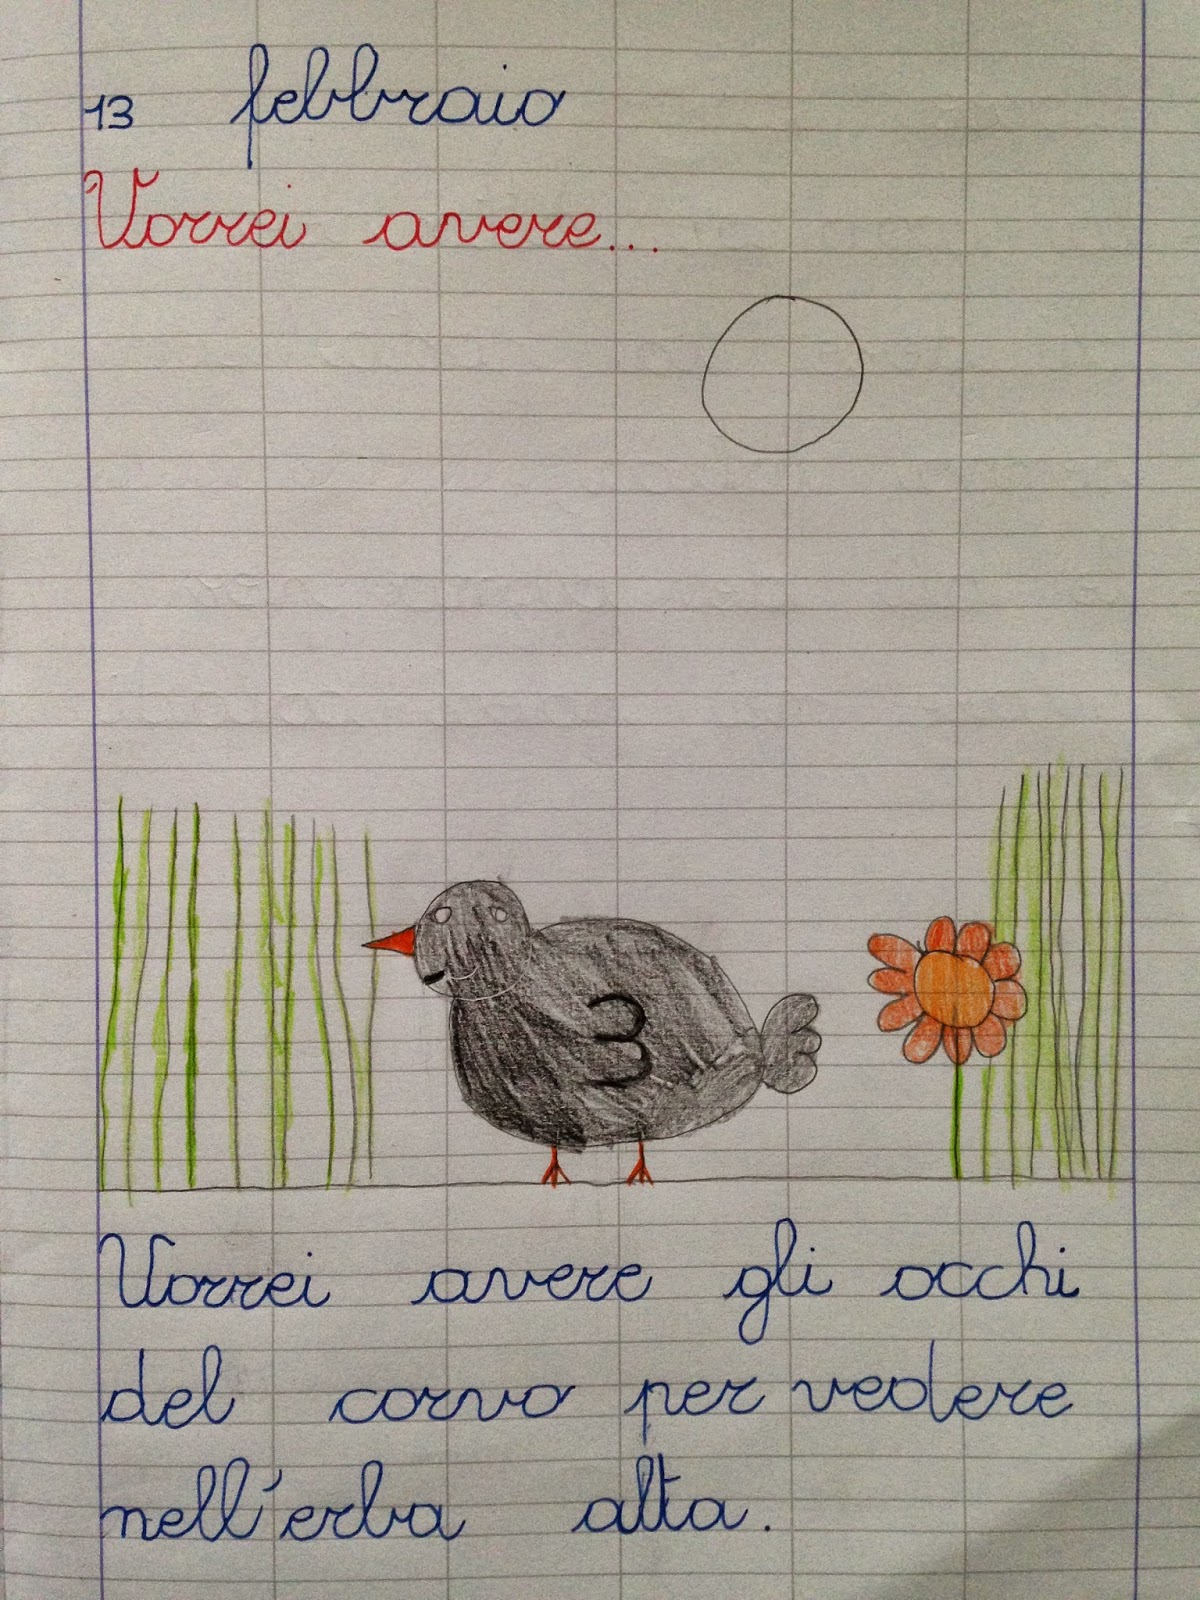 13 febbraio
Vorrei avere...
Vorrei avere gli occhi
del corvo per vedere
nell'erba alta.